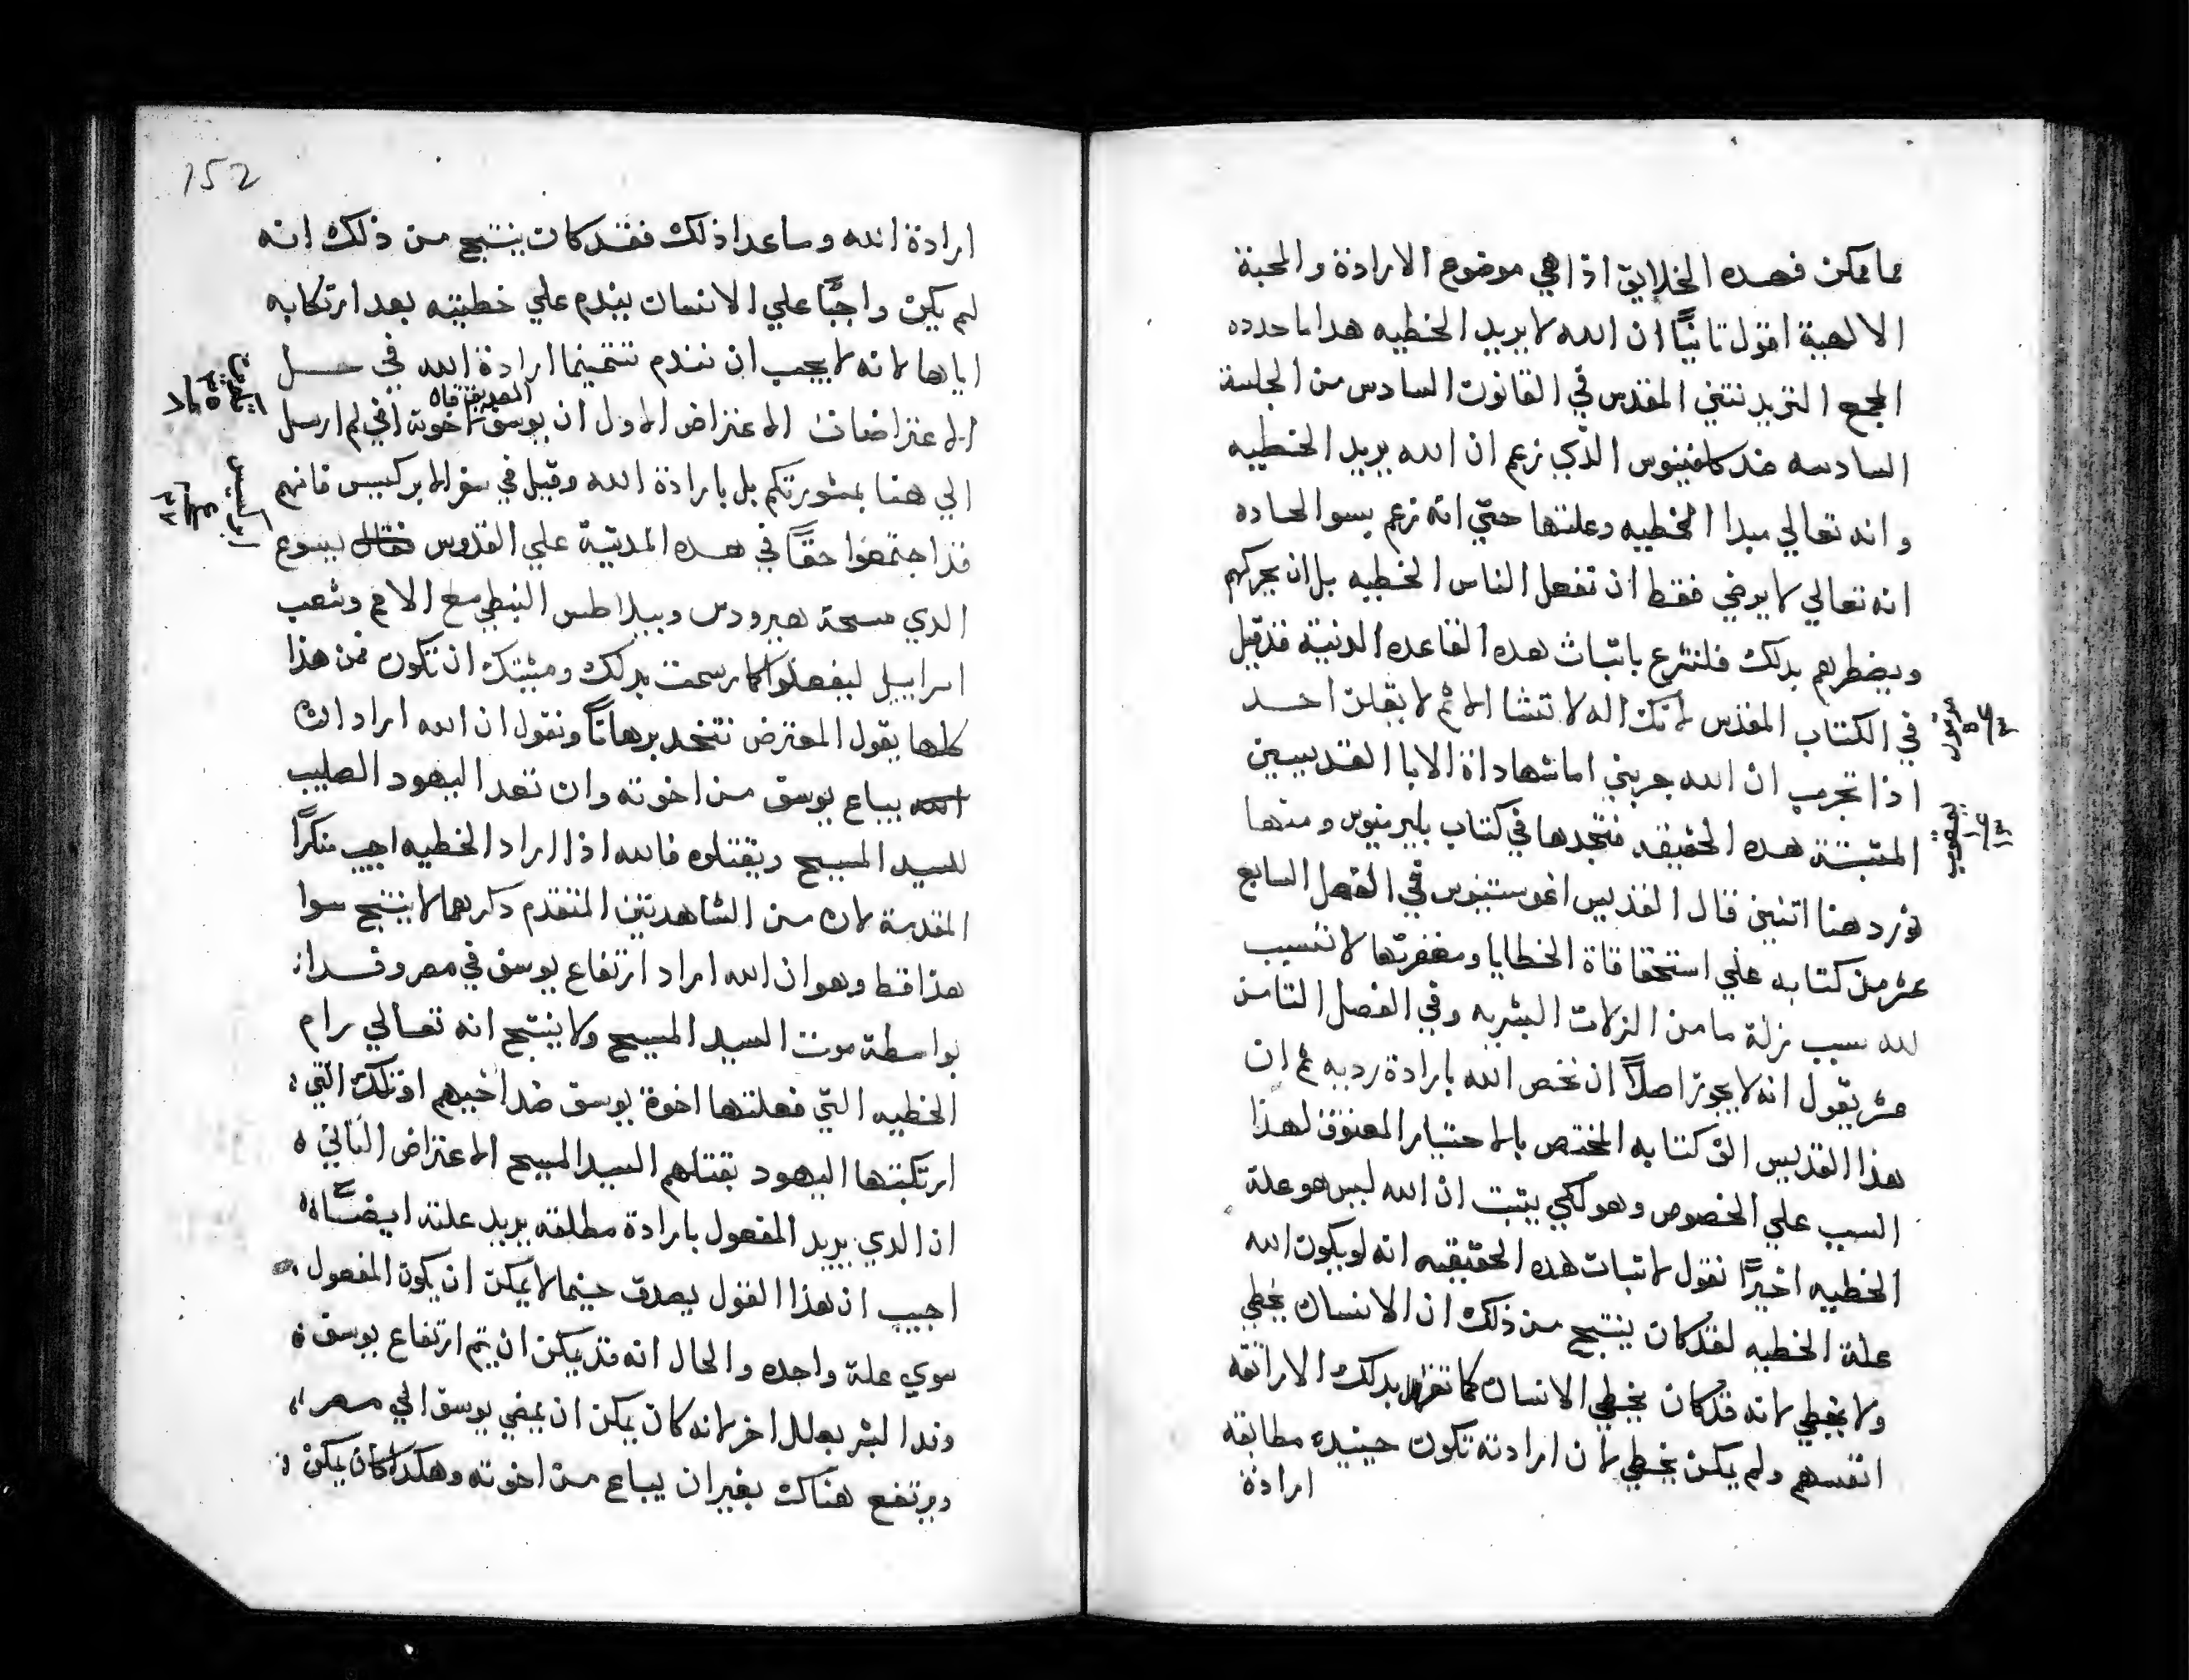 مما يمكن فهده الخلايق اذا هي موضوع الارادة والمحبة
الالهية اقول تانيًا ان الله لا يريد الخطيه هدا ما حدده
المجمع التريدنتني المقدس في القانون السادس من الجلسة
السادسه ضد كلفينوس الذي زعم ان الله يريد الخطيه
وانه تعالي مبدا الخطيه وعلتها حتي انه زعم بسو الحاده
انه تعالي لا يرضي فقط ان تفعل الناس الخطيه بل ان يحركهم
ويضطرهم بدلك فلنشرع باتبات هده القاعده الدنية فقد قيل
في الكتاب المقدس لانك اله لا تشا الاثم لا يقلن احد
مزمور ٥ ع ٤
اذا تجرب ان الله جربني اما شهاداة الابا القديسين
يعقوب ١ ع ١٣
المتبتة هده الحقيقه فتجدها في كتاب بلرمينوس ومنها
نورد هنا اتنين قال القديس اغوستينوس في الفصل السابع
عشر من كتابه علي استحقاقاة الخطايا ومغفرتها لا تنسب
لله سبب زلة ما من الزلات البشريه وفي الفصل التامن
عشر يقول انه لا يجوز اصلاً ان نخص الله بارادة رديه ثم ان
هذا القديس الف كتابه المختص بالاختيار المعتوق لهذا
السبب علي الخصوص وهو لكي يتبت ان الله ليس هو علة
الخطيه اخيرًا نقول لاتبات هده الحقيقيه انه لو يكون الله
علة الخطيه لقد كان ينتج من ذلك ان الانسان يخطي
ولا يخطي لانه قد كان يخطي الانسان كما تقرر بدلك الاراتقه
انفسهم ولم يكن يخطي لان ارادته تكون حينيده مطابقه
ارادة
152
ارادة الله وما عدا ذلك فقد كان ينتج من ذلك انه
لم يكن واجبًا علي الانسان يندم علي خطيته بعد ارتكابه
اياها لانه لا يجب ان نندم تتميمنا ارادة الله في حل
الاعتراضات الاعتراض الاول ان يوسق الصديق قاه لاخوته اني لم ارسل
الي هنا بمشورتكم بل بارادة الله وقيل في سفر الابركسيس فانهم
ابركسيس ٤ ع ٢٧
قد اجتمعوا حقًا في هده المدينة علي القدوس فقال يسوع
الدي مسحة هيرودس وبيلاطس النبطي مع الامم وشعب
اسراييل ليفعلوا كما رسمت يدلك ومشيتك ان تكون فمن هذا
كلها يقول المعترض نتخد برهانًا ونقول ان الله اراد ان
الله يباع يوسق من اخوته وان تعد اليهود الصليب
للسيد المسيح ويقتلوه فالله اذا اراد الخطيه اجيب منكرًا
المقدمة لان من الشاهدتين المتقدم دكرهما لا ينتج سوا
هذا فقط وهو ان الله اراد ارتفاع يوسق في مصر وفدانا
بواسطة موت السيد المسيح ولا ينتج انه تعالي رام
الخطيه التي فعلتها اخوة يوسق ضد اخيهم او تلك التي
ارتكبتها اليهود بقتلهم السيد المسيح الاعتراض التاني
ان الدي يريد المفعول بارادة مطلقه يريد علته ايضًا
اجيب ان هذا القول يصدق حينما لا يمكن ان يكون المفعول
سوي علة واحده والحال انه قد يمكن ان يتم ارتفاع يوسق
وفدا البشر بعلل اخر لانه كان يمكن ان يمضي يوسق الي مصر
ويرتفع هناك بغير ان يباع من اخوته وهكدا كان يمكن